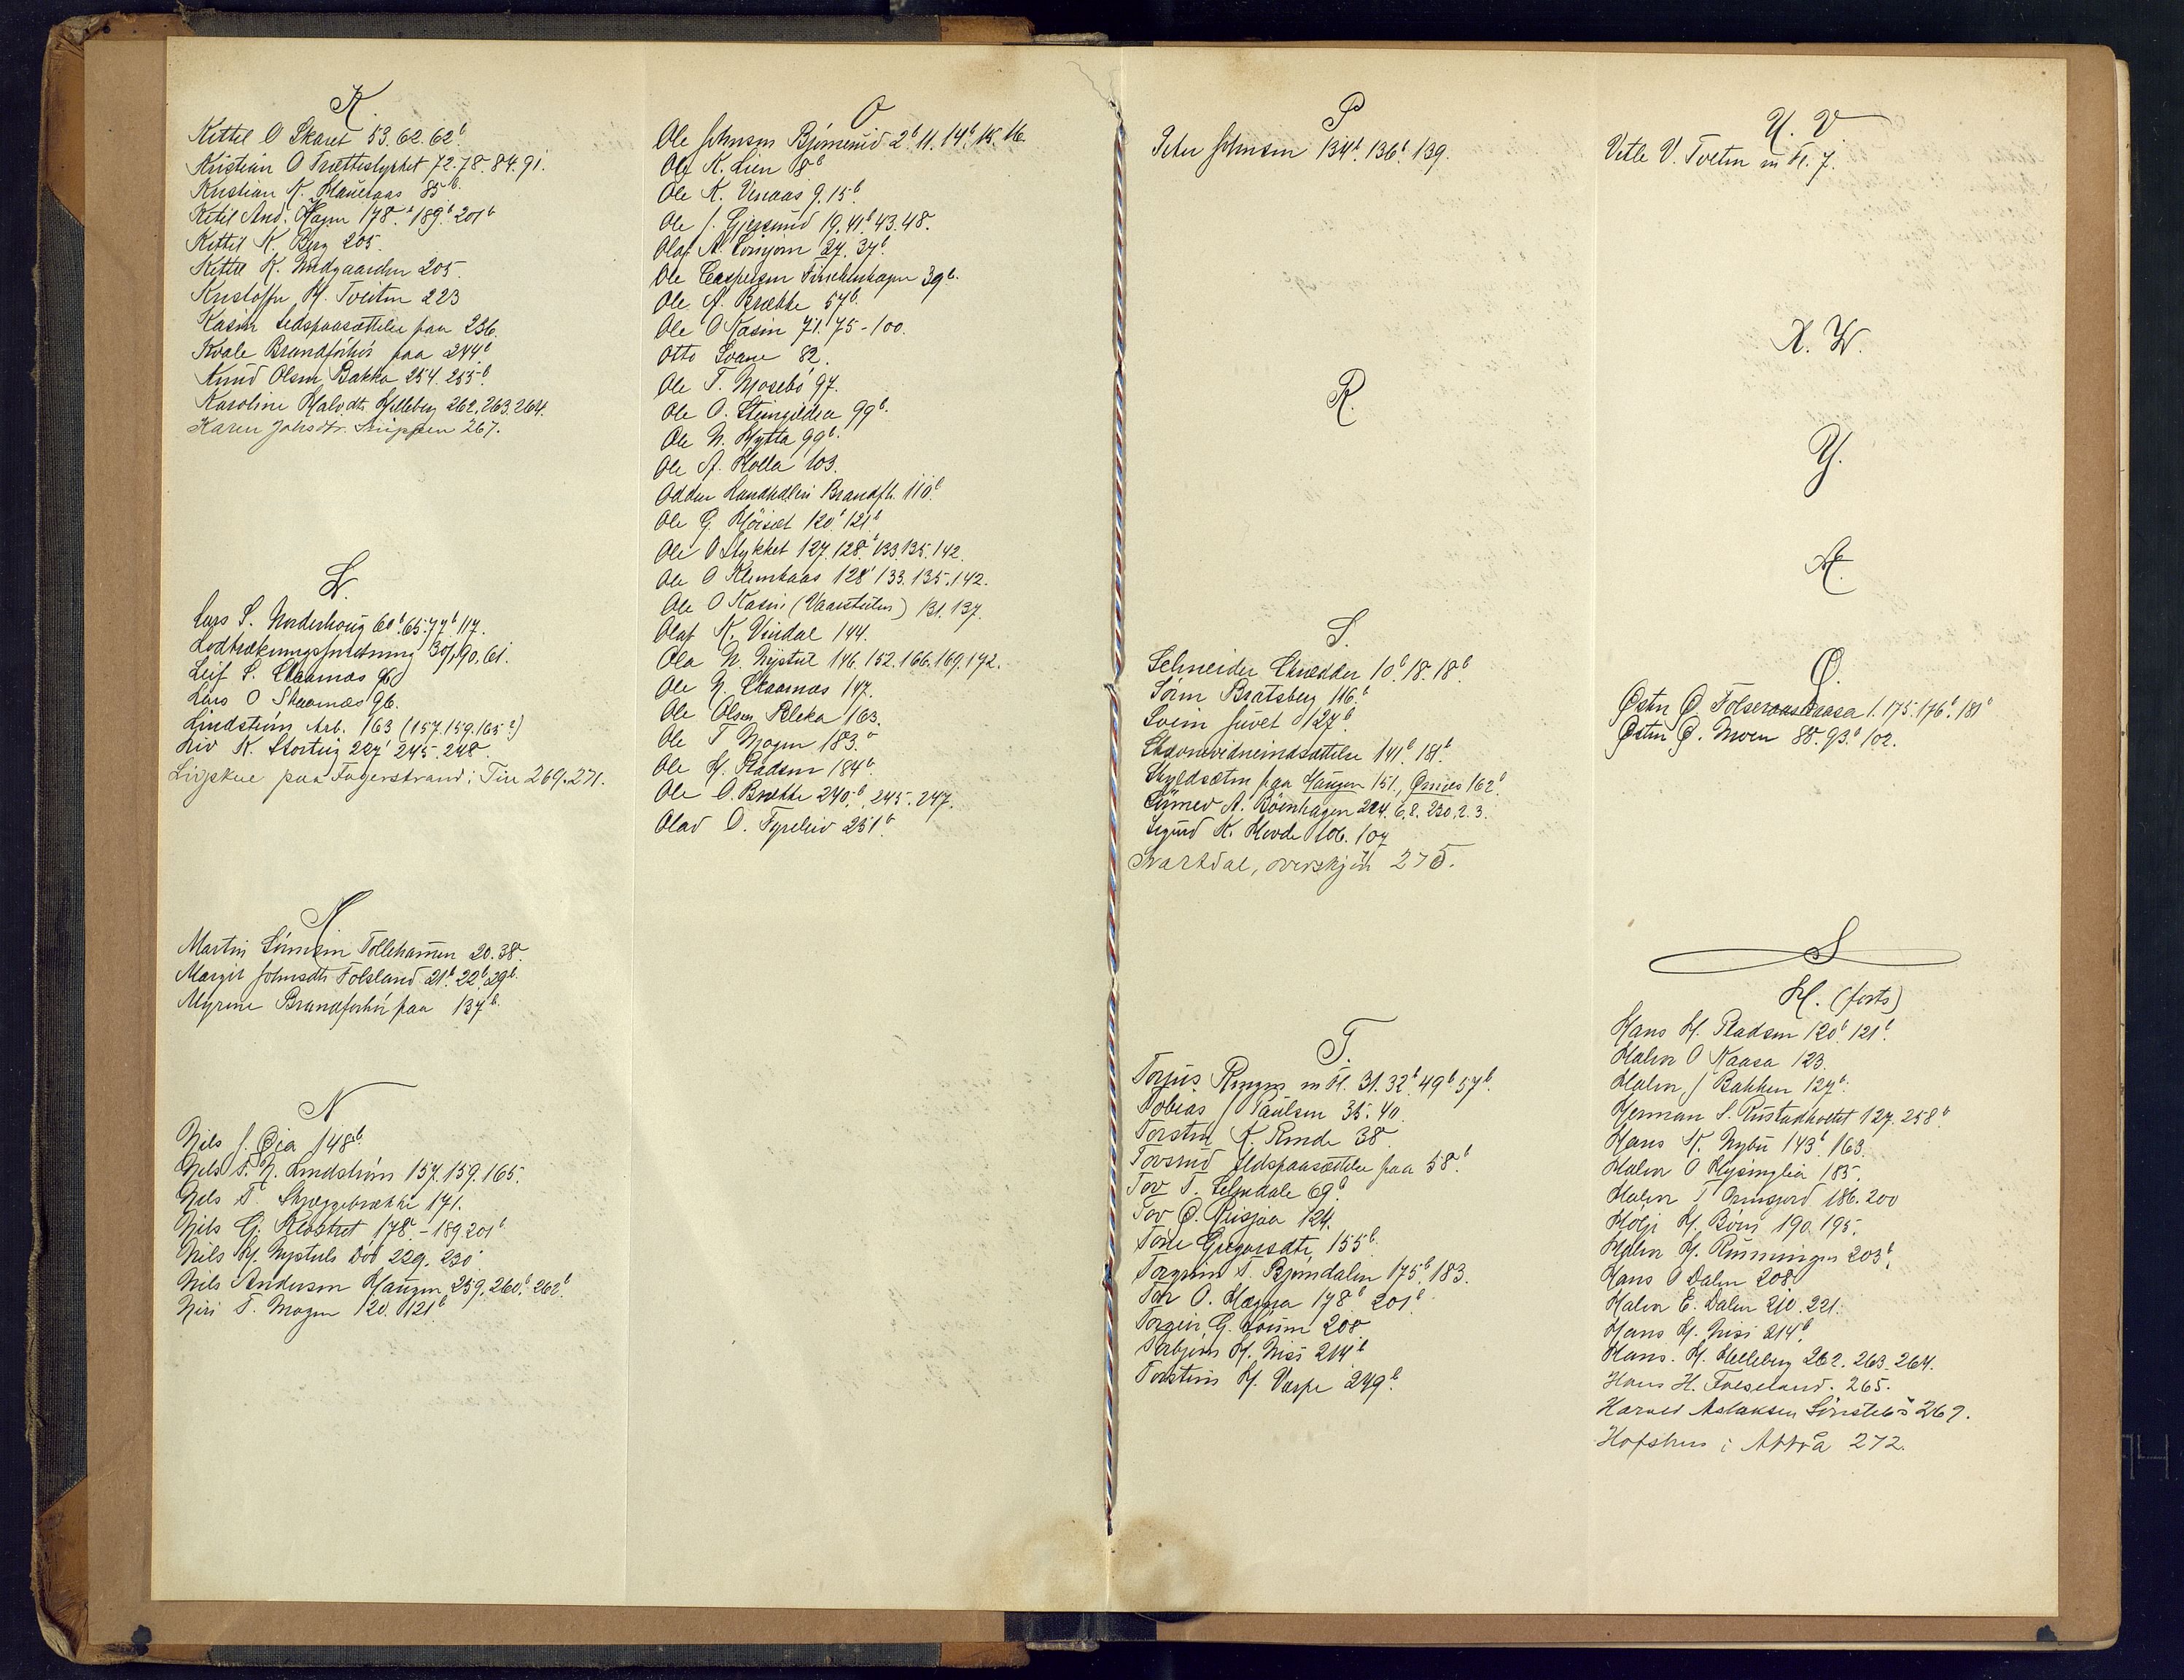 K.
Kittel O Skaret 53. 62. 62b
Kristian O Trættestykket 72. 78. 84. 91.
Kristian K. 85b.
Ketil And. Hagen 178b. 189b 201b
Kittil K. Berg 205.
Kittil K. Midgaarden 205.
Kristoffer H. Tveiten 223
Kasin Ildspaasættelse paa 236.
Kvale Brandforhör paa 244b
Knud Olsen Bakka 254. 255b.
Karoline Halvdtr. Helleberg 262, 263. 264.
Karen Johsdr. 267.
L.
Lars S. Norderhoug 60b. 65. 77b 117.
Leif S. Skaarnæs 96
Lars O Skaarnæs 96.
Lindström Arb. 163 (157. 159. 165?)
Liv K. 227b 245. 248
Ligskue paa Fagerstrand i Tin 269. 271.
M
Martin Sörensen Tollehammen 20. 38.
Margit Johnsdtr Folsland 21b. 22b. 29b.
Myrene Brandforhör paa 137b.
N
Nils J. Öia 148b.
Nils F. N. Lindström 157. 159. 165.
Nils T. Skjeggebrække 171.
Nils Gj. Klostret 178. - 189 201b
Nils H. Nystuls Död 229. 230
Nils Anderson Haugen 259. 260b. 262b.
Niri T. Mogen 120. 121b
O
Ole Johnsen Björnerud 2b. 11. 14b. 15. 16.
Ole K. Lien 8b
Ole K. Venaas 9. 15b.
Ole J. Gjersund 19. 41b. 43. 48.
Olaf A. 27. 37b
Ole Caspersen 39b.
Ole A. Brække 57b.
Ole O Kasin 71. 75 - 100.
Otto Svane 82.
Ole T. Mosebö 97.
Ole O. Steingildra 99b.
Ole N. Hytta 99b.
Ole A. Kolla 103.
Odden Landhdleri Brandfh. 110b
Ole G. Höisæt 120b 121b
Ole O Stykket 127. 128b. 133 135. 142.
Ole O Klemhaas 128b 133. 135. 142.
Ole O Kasin (Vaasstulen) 131. 137.
Olaf K. Vindal 144.
Ola N. Nystul 146. 152. 166. 169. 172.
Ole N. Skaarnæs 147.
Ole Olsen Bleka 163.
Ole T Mogen 183.
Ole H. Rudsen 184b.
Ole O. Brække 240b. 245. 247.
Olav O. Tyreliv 251b.
P
Peter Johnsen 134b. 136b. 139.
R.
S.
Schneider Skredder 10b. 18. 18b
Sörn Bratsberg 116b
Svein Juvet 127b
Skjönsvidneindsættelse 141b. 181b.
Skyldsætn paa Haugen 151., Örnes 162b
Gunnev A. Böenhagen 224. 6. 8. 230. 2. 3.
Sigurd K. Hovde 106. 107
Svartdal, overskjön 275.
T.
Torjus Ringnes m Fl. 31. 32b 49b 57b.
Tobias J Paulsen 35. 40
Torsten K. Rinde 38
Tovsrud Ildspaasættelse paa 58b.
Tov T. Selmdale 69b
Tov O. Reisjaa 124.
Tone Gregarsdtr. 155b.
Torgrim T. Bjørndalen 175b. 183.
Tor O. Hægna 178b 201b
Torgeir G. Loum 208
Torbjörn H. Nisi 214b
Torstein H. Varpe 249b.
U. V
Vetle V. Tveten m Fl. 7.
X. W.
Y.
Æ.
Ø.
Østen Ø. Folserauskaasa 1. 175. 176b. 181b
Østen Ø. Moen 88. 93b 102.
S
H. (forts)
Hans H. Rudsen 120b. 121b.
Halvor O Kaasa 123.
Halvor J Bakken 127b.
Herman S. Rustadholtet 127. 258b
Hans K. Nybu 143b 163.
Halvor O Rysinglia 185.
Halvor T Ormsjord 186. 200
Holje H. Böni 190. 195.
Halvor H. Rønningen 203b.
Hans O Dalen 208
Halvor E. Dalen 210. 221.
Hans H. Nisi 214b.
Hans. H. Helleberg 262. 263. 264.
Hans H. Folseland. 265.
Harald Aslaksen Sönstebö 267.
Hofshus i Attraa 272.